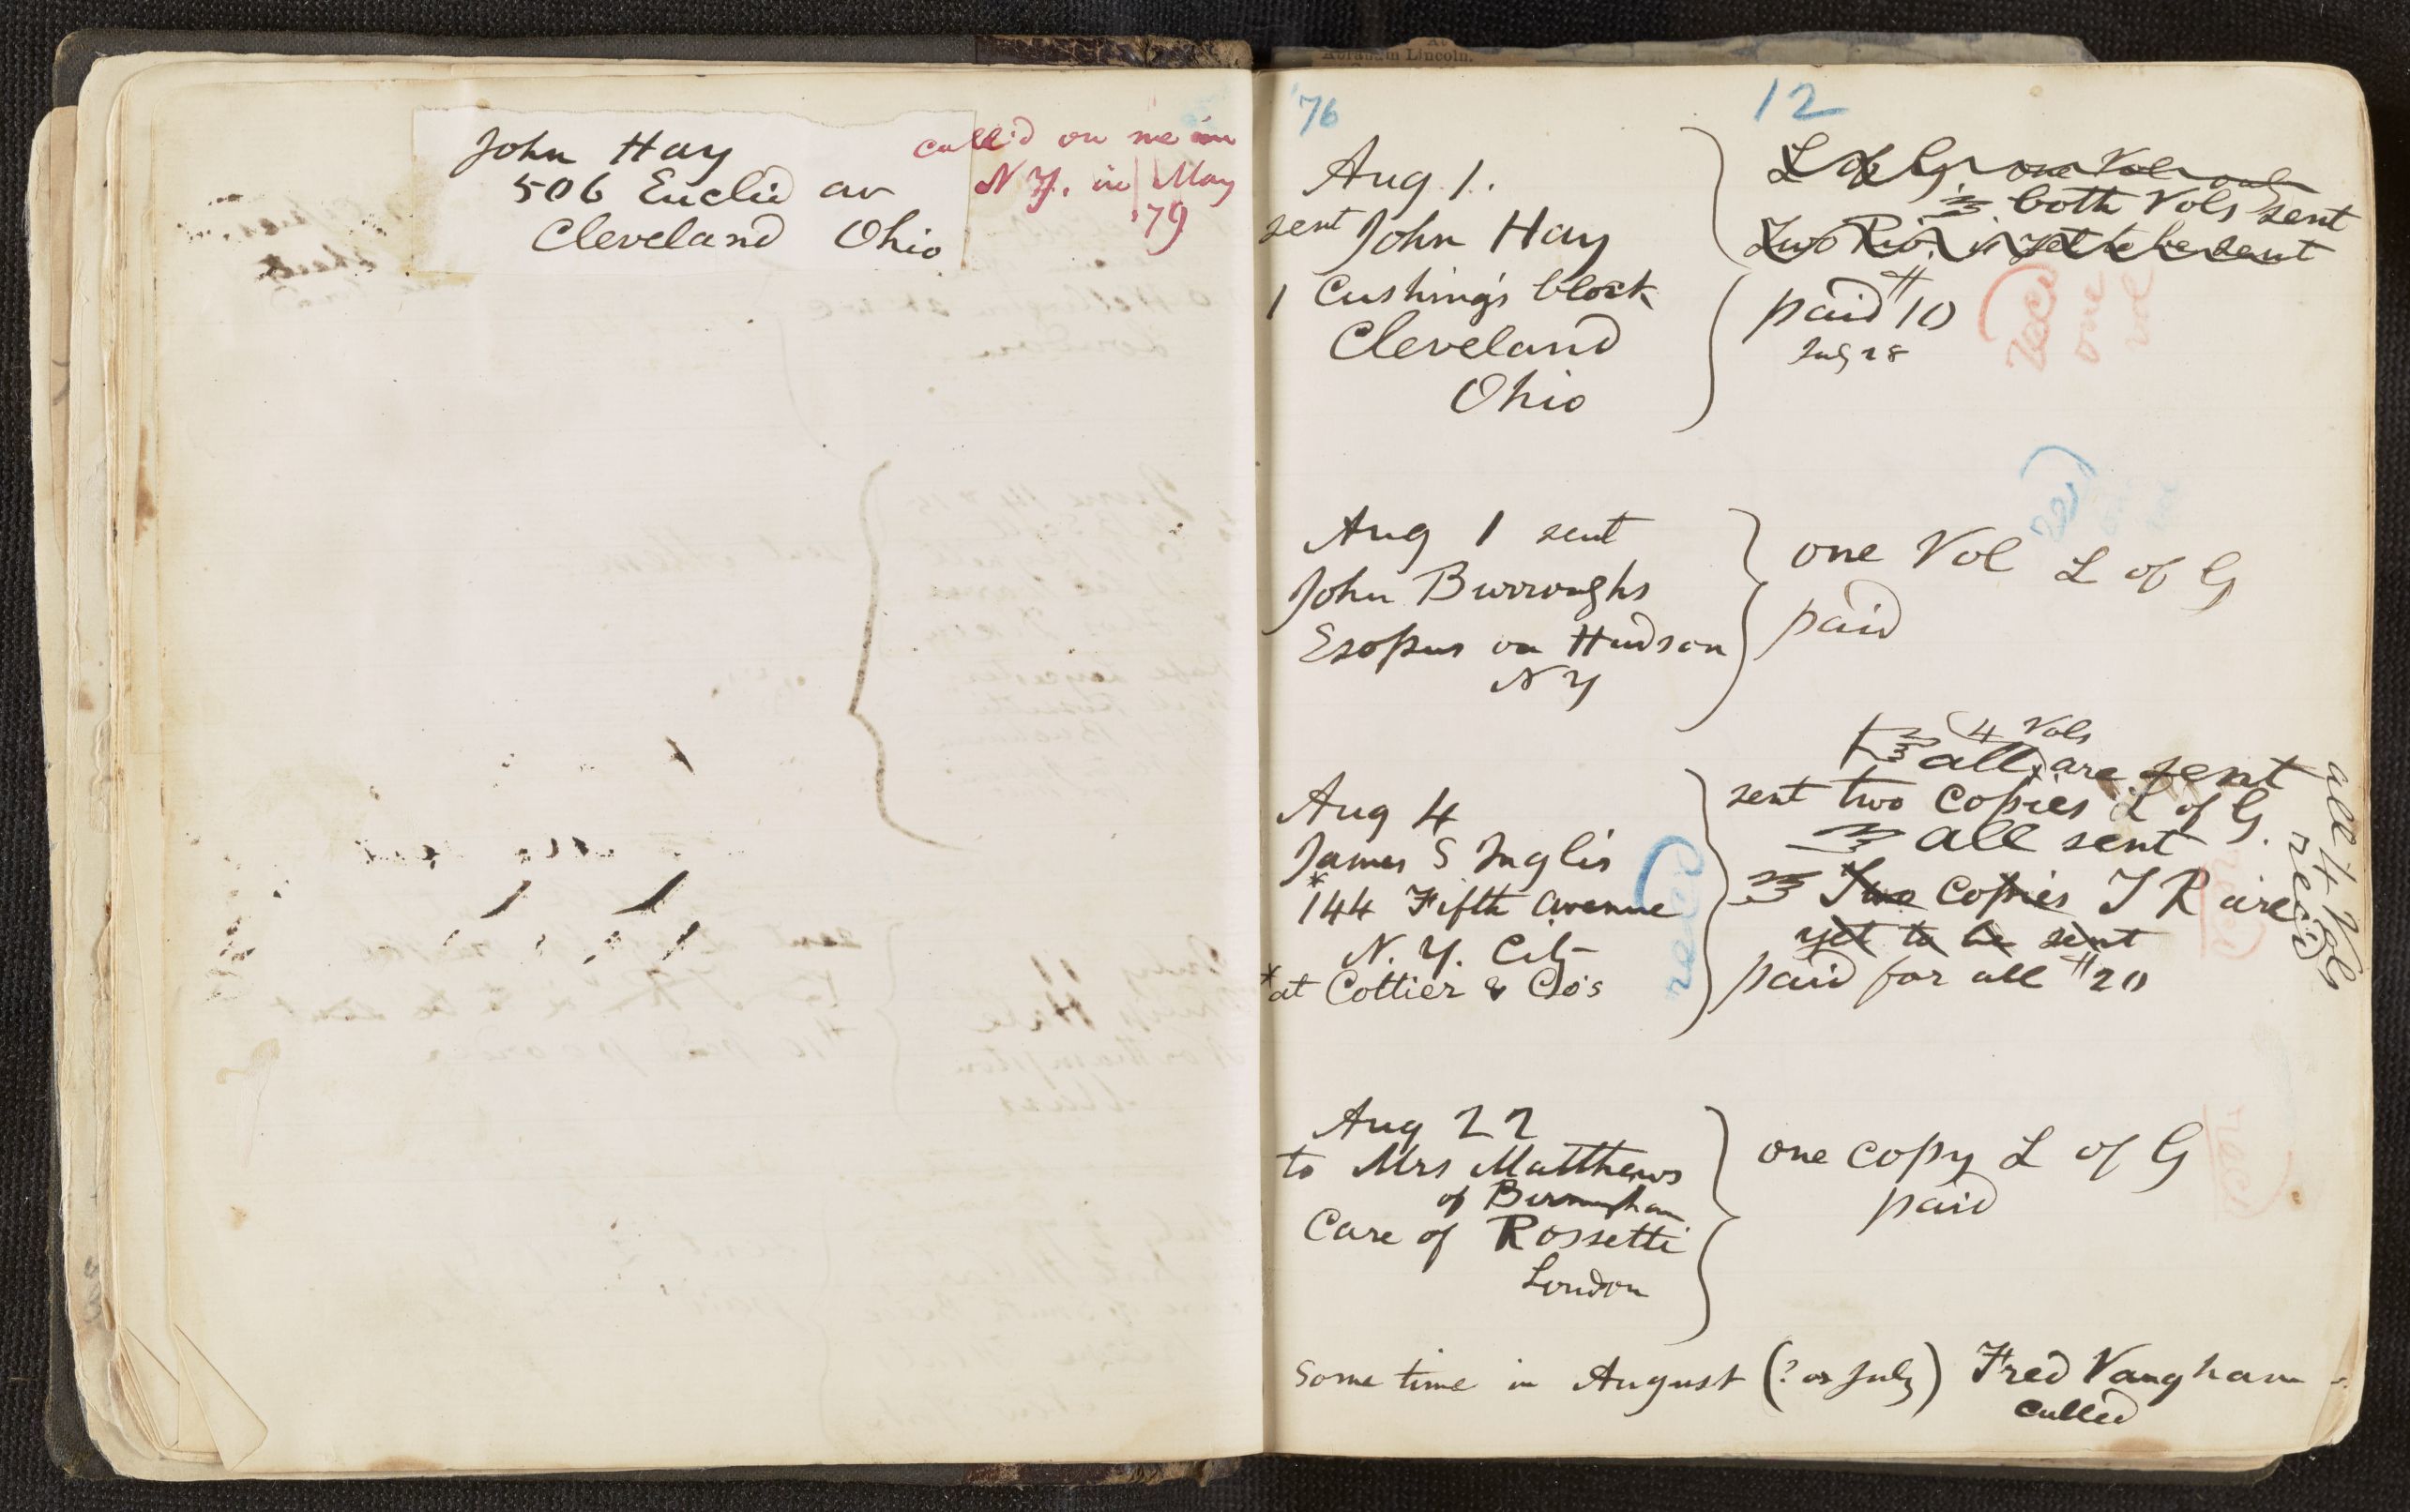 John Hay
506 Euclid av
Cleveland Ohio
call'd on me in
N Y. in May
'79
Abraham Lincoln.
'76
12
Aug 1.
sent John Hay
1 Cushing's block
Cleveland
Ohio
L of G one Vol only
both Vols sent
Two Riv. is yet to be sent
paid $10
July 28
rec'd
one
vol
Aug 1 sent
John Burroughs
Esopus on Hudson
N Y
one Vol L of G
paid
rec'd
Aug 4
James S Inglis
*144 Fifth avenue
N. Y. City
*at Cottier & Co's
rec'd
4 Vols
all are sent
sent two copies L of G.
all sent
Two Copies T R are
yet to be sent
paid for all $20
all 4 Vols
rec'd
Aug 22
to Mrs Matthews
of Birmingham
Care of Rossetti
London
one copy L of G
paid
rec'd
Some time in August (? or July) Fred Vaughan
called